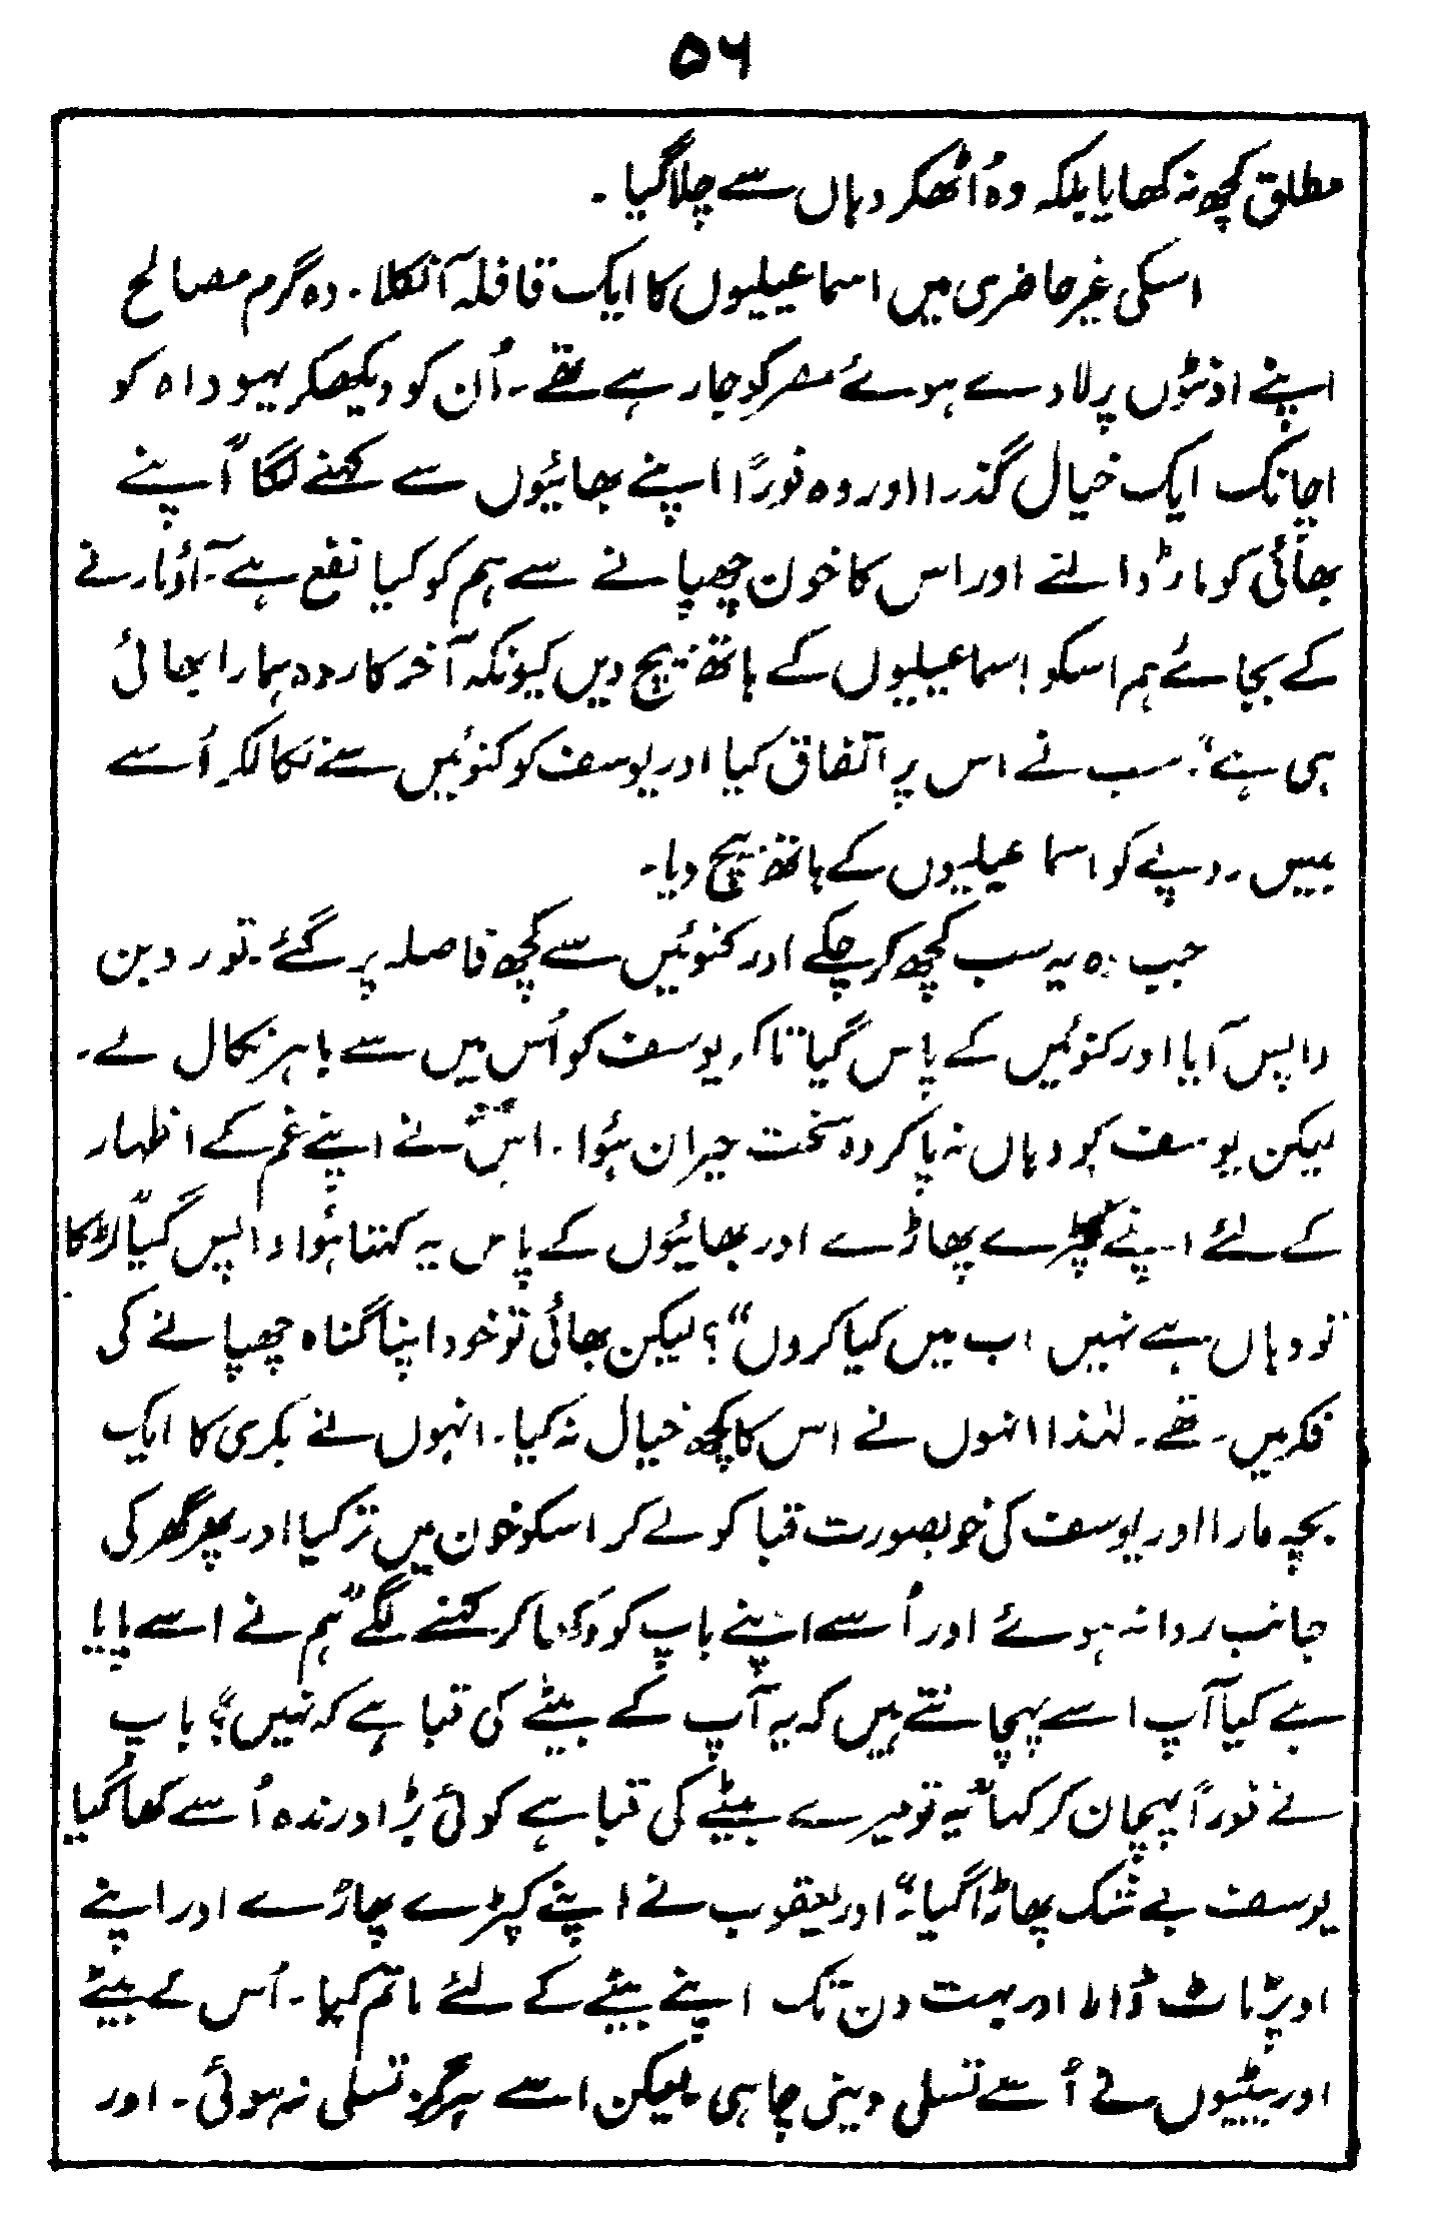 ۵۶
مطلق کچھ نہ کھایا بلکہ وہ اُٹھکر وہاں سے چلا گیا ۔
اسکی غیر حاضری میں اسماعیلیوں کا ایک قافلہ آ نکلا ۔ وہ گرم مصالح
اپنے اونٹوں پر لادے ہوئے مصر کو جا رہے تھے ۔ اُن کو دیکھکر یہوداہ کو
اچانک ایک خیال گذرا اور وہ فوراً اپنے بھائیوں سے کہنے لگا "اپنے
بھائی کو مار ڈالنے اور اس کا خون چھپانے سے ہم کو کیا نفع ہے ۔ آؤ مارنے
کے بجائے ہم اسکو اسماعیلیوں کے ہاتھ بیچ دیں کیونکہ آخر کار وہ ہمارا بھائی
ہی ہے"۔ سب نے اس پر اتفاق کیا اور یوسف کو کنوئیں سے نکالکر اُسے
بیس روپئے کو اسماعیلیوں کے ہاتھ بیچ دیا ۔
جب وہ یہ سب کچھ کر چکے اور کنوئیں سے کچھ فاصلہ پر گئے ۔ تو روبن
واپس آیا اور کنوئیں کے پاس گیا تاکہ یوسف کو اُس میں سے باہر نکال لے ۔
لیکن یوسف کو وہاں نہ پا کر وہ سخت حیران ہؤا ۔ اس نے اپنے غم کے اظہار
کے لئے اپنے کپڑے پھاڑے اور بھائیوں کے پاس یہ کہتا ہؤا واپس گیا "لڑکا
تو وہاں ہے نہیں اب میں کیا کروں"؟ لیکن بھائی تو خود اپنا گناہ چھپانے کی
فکر میں تھے ۔ لہٰذا انہوں نے اس کا کچھ خیال نہ کیا ۔ انہوں نے بکری کا ایک
بچہ مارا اور یوسف کی خوبصورت قبا کو لے کر اسکو خون میں تر کیا اور پھر گھر کی
جانب روانہ ہوئے اور اُسے اپنے باپ کو دکھا کر کہنے لگے "ہم نے اسے پایا
ہے کیا آپ اسے پہچانتے ہیں کہ یہ آپ کے بیٹے کی قبا ہے کہ نہیں"؟ باپ
نے فوراً پہچان کر کہا "یہ تو میرے بیٹے کی قبا ہے کوئی بڑا درندہ اُسے کھا گیا
یوسف بے شک پھاڑا گیا"۔ اور یعقوب نے اپنے کپڑے پھاڑے اور اپنے
اوپر ٹاٹ ڈالا اور بہت دن تک اپنے بیٹے کے لئے ماتم کیا ۔ اُس کے بیٹے
اور بیٹیوں نے اُسے تسلی دینی چاہی لیکن اسے ہرگز تسلی نہ ہوئی ۔ اور